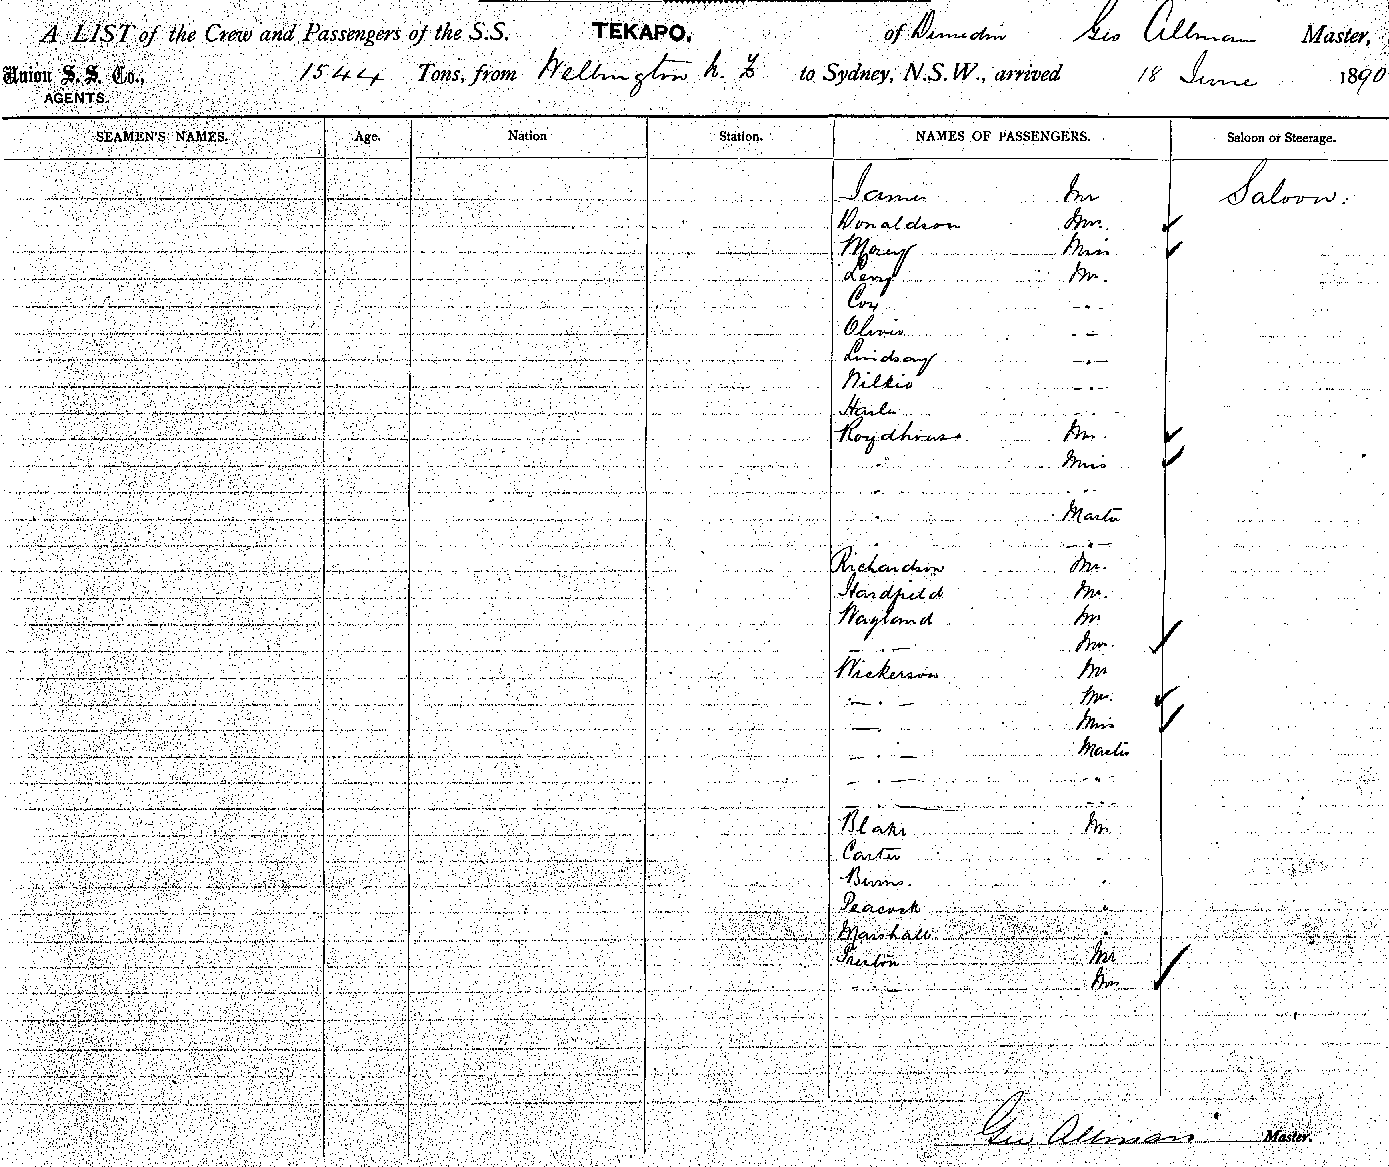 A LIST of the Crew and Passengers of the S.S. TEKAPO, of Dunedin Geo Allman Master,
Union S. S. Co., AGENTS. 1544 Tons, from Wellington N. Z to Sydney, N.S.W., arrived 18 June 1890
SEAMEN'S NAMES. Age. Nation Station. NAMES OF PASSENGERS. Saloon or Steerage.
James Mr Saloon.
Donaldson Mrs. ✓
Morey Miss ✓
Levy Mr.
Cox "
Olivier "
Lindsay "
Wilkie "
"
Roydhouse Mrs. ✓
" Miss ✓
" "
" Master
" "
Richardson Mr.
Hardfield Mr.
Wayland Mr
" Mrs. ✓
Wickerson Mr
" Mrs. ✓
" Miss ✓
" Master
" "
" "
Blake Mr
Carter "
Burns. "
Peacock "
Marshall "
Preston Mr
" Mrs ✓
Geo Allman Master.